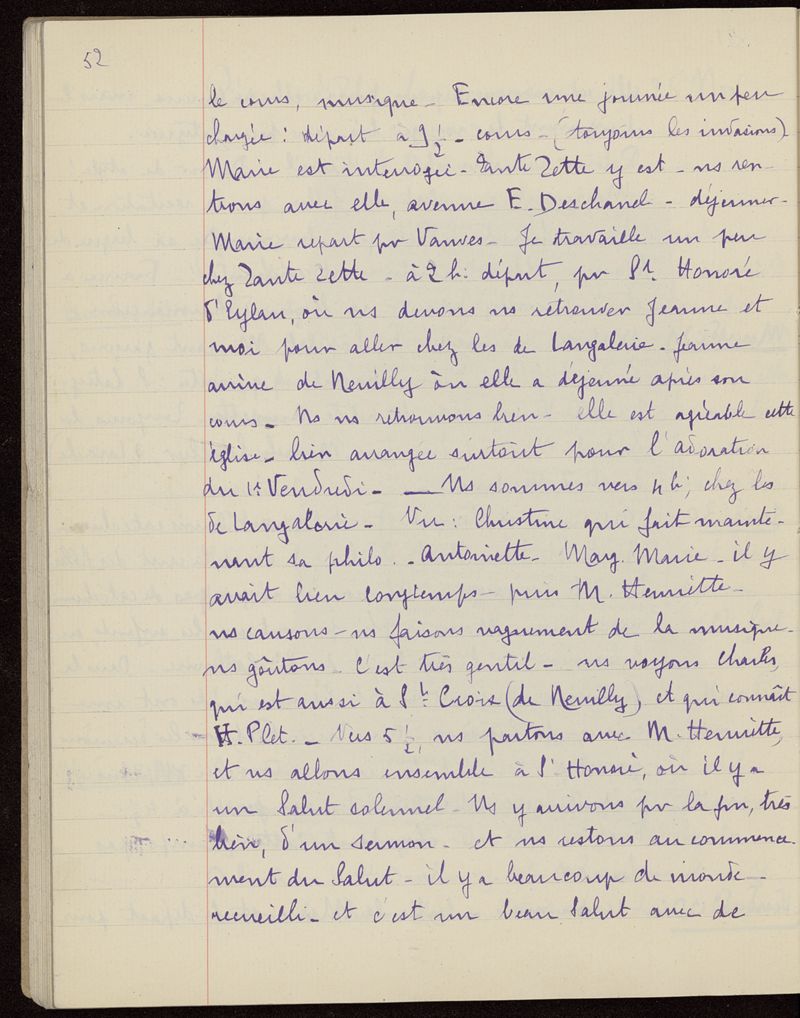 52
le cours, musique - Encore une journée un peu
chargée : départ à 9 1/2 - cours - (toujours les invasions)
Marie est interrogée - Tante Zette y est - ns ren-
trons avec elle, avenue E. Deschanel - déjeuner -
Marie repart pr Vanves - Je travaille un peu
chez Tante Zette - à 2 h. départ, pr St. Honoré
d'Eylau, où ns devons ns retrouver Jeanne et
moi pour aller chez les de Langalerie - Jeanne
arrive de Neuilly où elle a déjeuné après son
cours - Ns ns retrouvons bien - elle est agréable cette
église - bien arrangée surtout pour l'adoration
du 1er Vendredi - — Ns sommes vers 4 h; chez les
de Langalerie - Vu : Christine qui fait mainte-
nant sa philo. - Antoinette - Marg. Marie - il y
avait bien longtemps - puis M. Henriette -
ns causons - ns faisons vaguement de la musique -
ns goûtons. C'est très gentil - ns voyons Charles,
qui est aussi à Ste Croix (de Neuilly), et qui connaît
H. Plet. - Vers 5 1/2, ns partons avec M. Henriette,
et ns allons ensemble à St Honoré, où il y a
un Salut solennel - Ns y arrivons pr la fin, très
bien, d'un sermon - et ns restons au commence-
ment du Salut - il y a beaucoup de monde -
recueilli - et c'est un beau Salut avec de